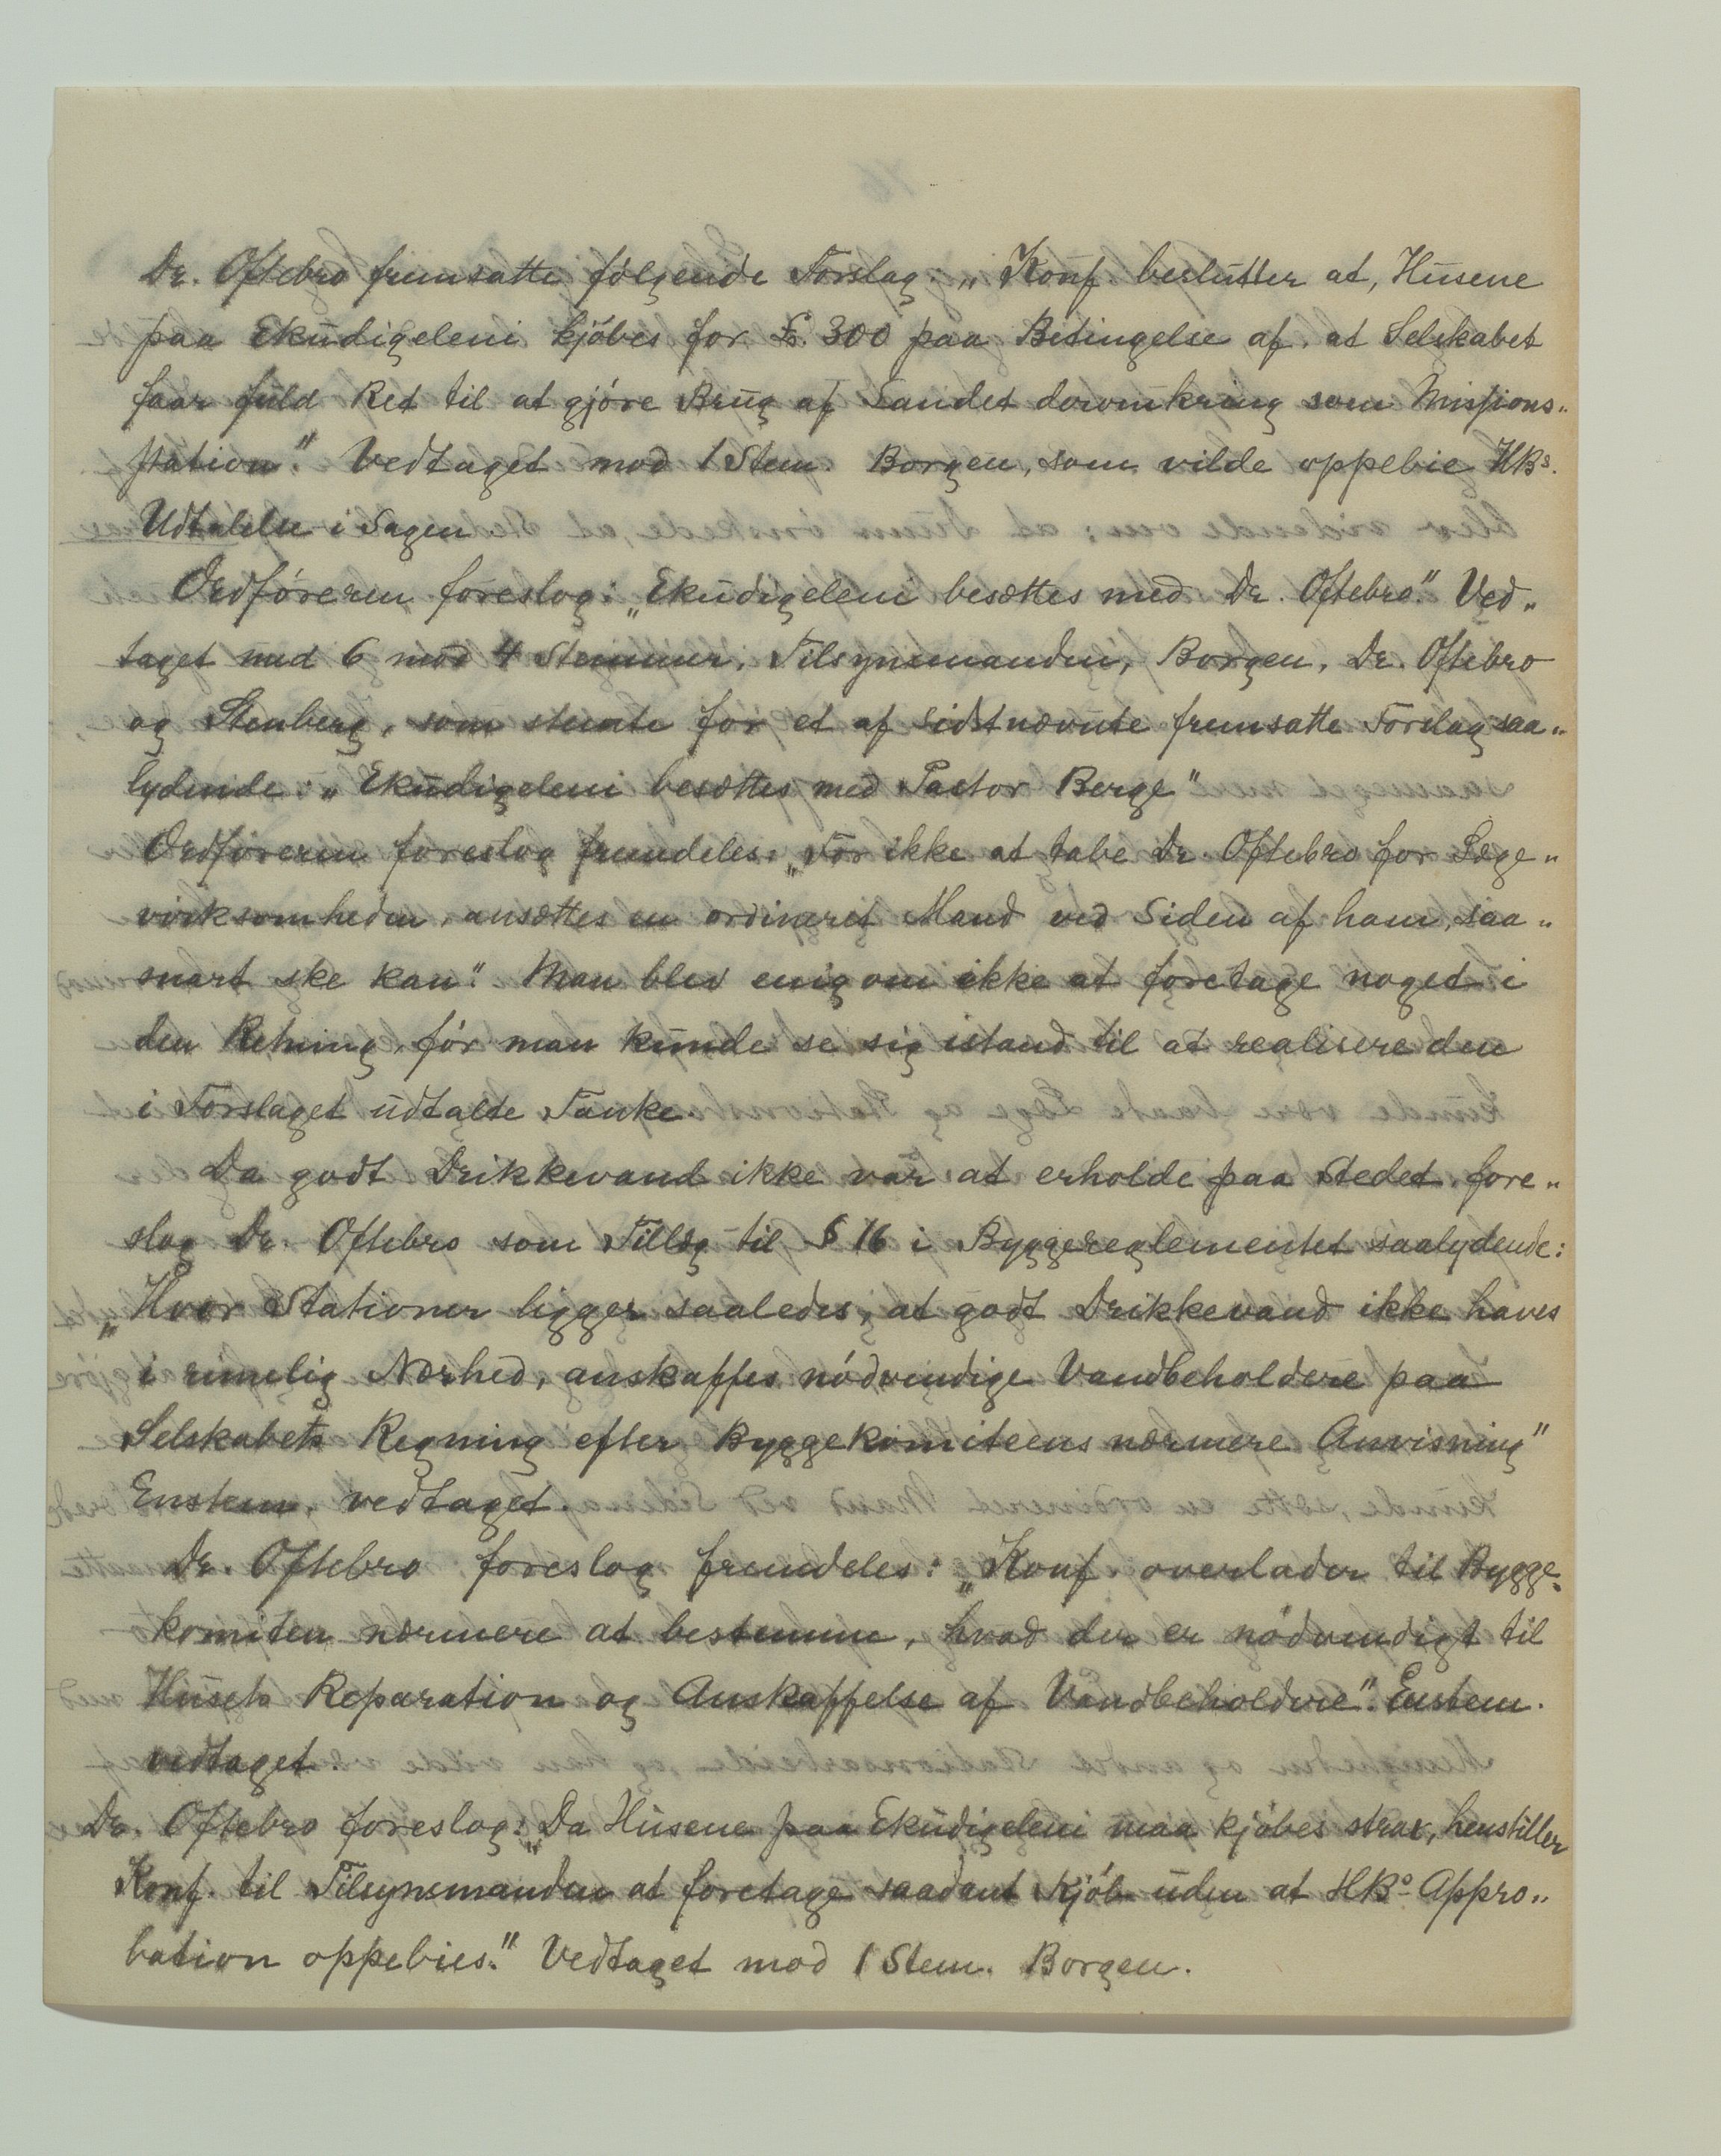 Dr. Oftebro fremsatte følgende Forslag: „Konf. beslutter at, Husene
paa Ekudigeleni kjöbes for £ 300 paa Betingelse af, at Selskabet
faar fuld Ret til at gjöre Brug af Landet deromkring som Missions„
station." Vedtaget mod 1 Stem. Borgen, som vilde oppebie HBs.
Udtalelse i Sagen
Ordföreren foreslog: „Ekudigeleni besættes med Dr. Oftebro." Ved„
taget med 6 mod 4 Stemmer, Tilsynsmanden, Borgen, Dr. Oftebro
og Stenberg, som stemte for et af sidstnævnte fremsatte Forslag saa„
lydende: „Ekudigeleni besættes med Pastor Berge"
Ordföreren foreslog fremdeles: „For ikke at tabe Dr. Oftebro for Læge„
virksomheden, ansættes en ordineret Mand ved Siden af ham, saa„
snart ske kan." Man blev enig om ikke at foretage noget i
den Retning, för man kunde se sig istand til at realisere den
i Forslaget udtalte Tanke.
Da godt Drikkevand ikke var at erholde paa Stedet, fore„
slog Dr. Oftebro som Tillæg til § 16 i Byggereglementet saalydende:
„Hvor Stationer ligger saaledes, at godt Drikkevand ikke haves
i rimelig Nærhed, anskaffes nödvendige Vandbeholdere paa
Selskabets Regning efter Byggekomiteens nærmere Anvisning"
Enstem. vedtaget.
Dr. Oftebro foreslog fremdeles: „Konf. overlader til Bygge„
komiteen nærmere at bestemme, hvad der er nödvendigt til
Husets Reparation og Anskaffelse af Vandbeholdere". Enstem.
vedtaget.
Dr. Oftebro foreslog: „Da Husene paa Ekudigeleni maa kjöbes strax, henstiller
Konf. til Tilsynsmanden at foretage saadant Kjöb uden at HBs Appro„
bation oppebies." Vedtaget mod 1 Stem. Borgen.